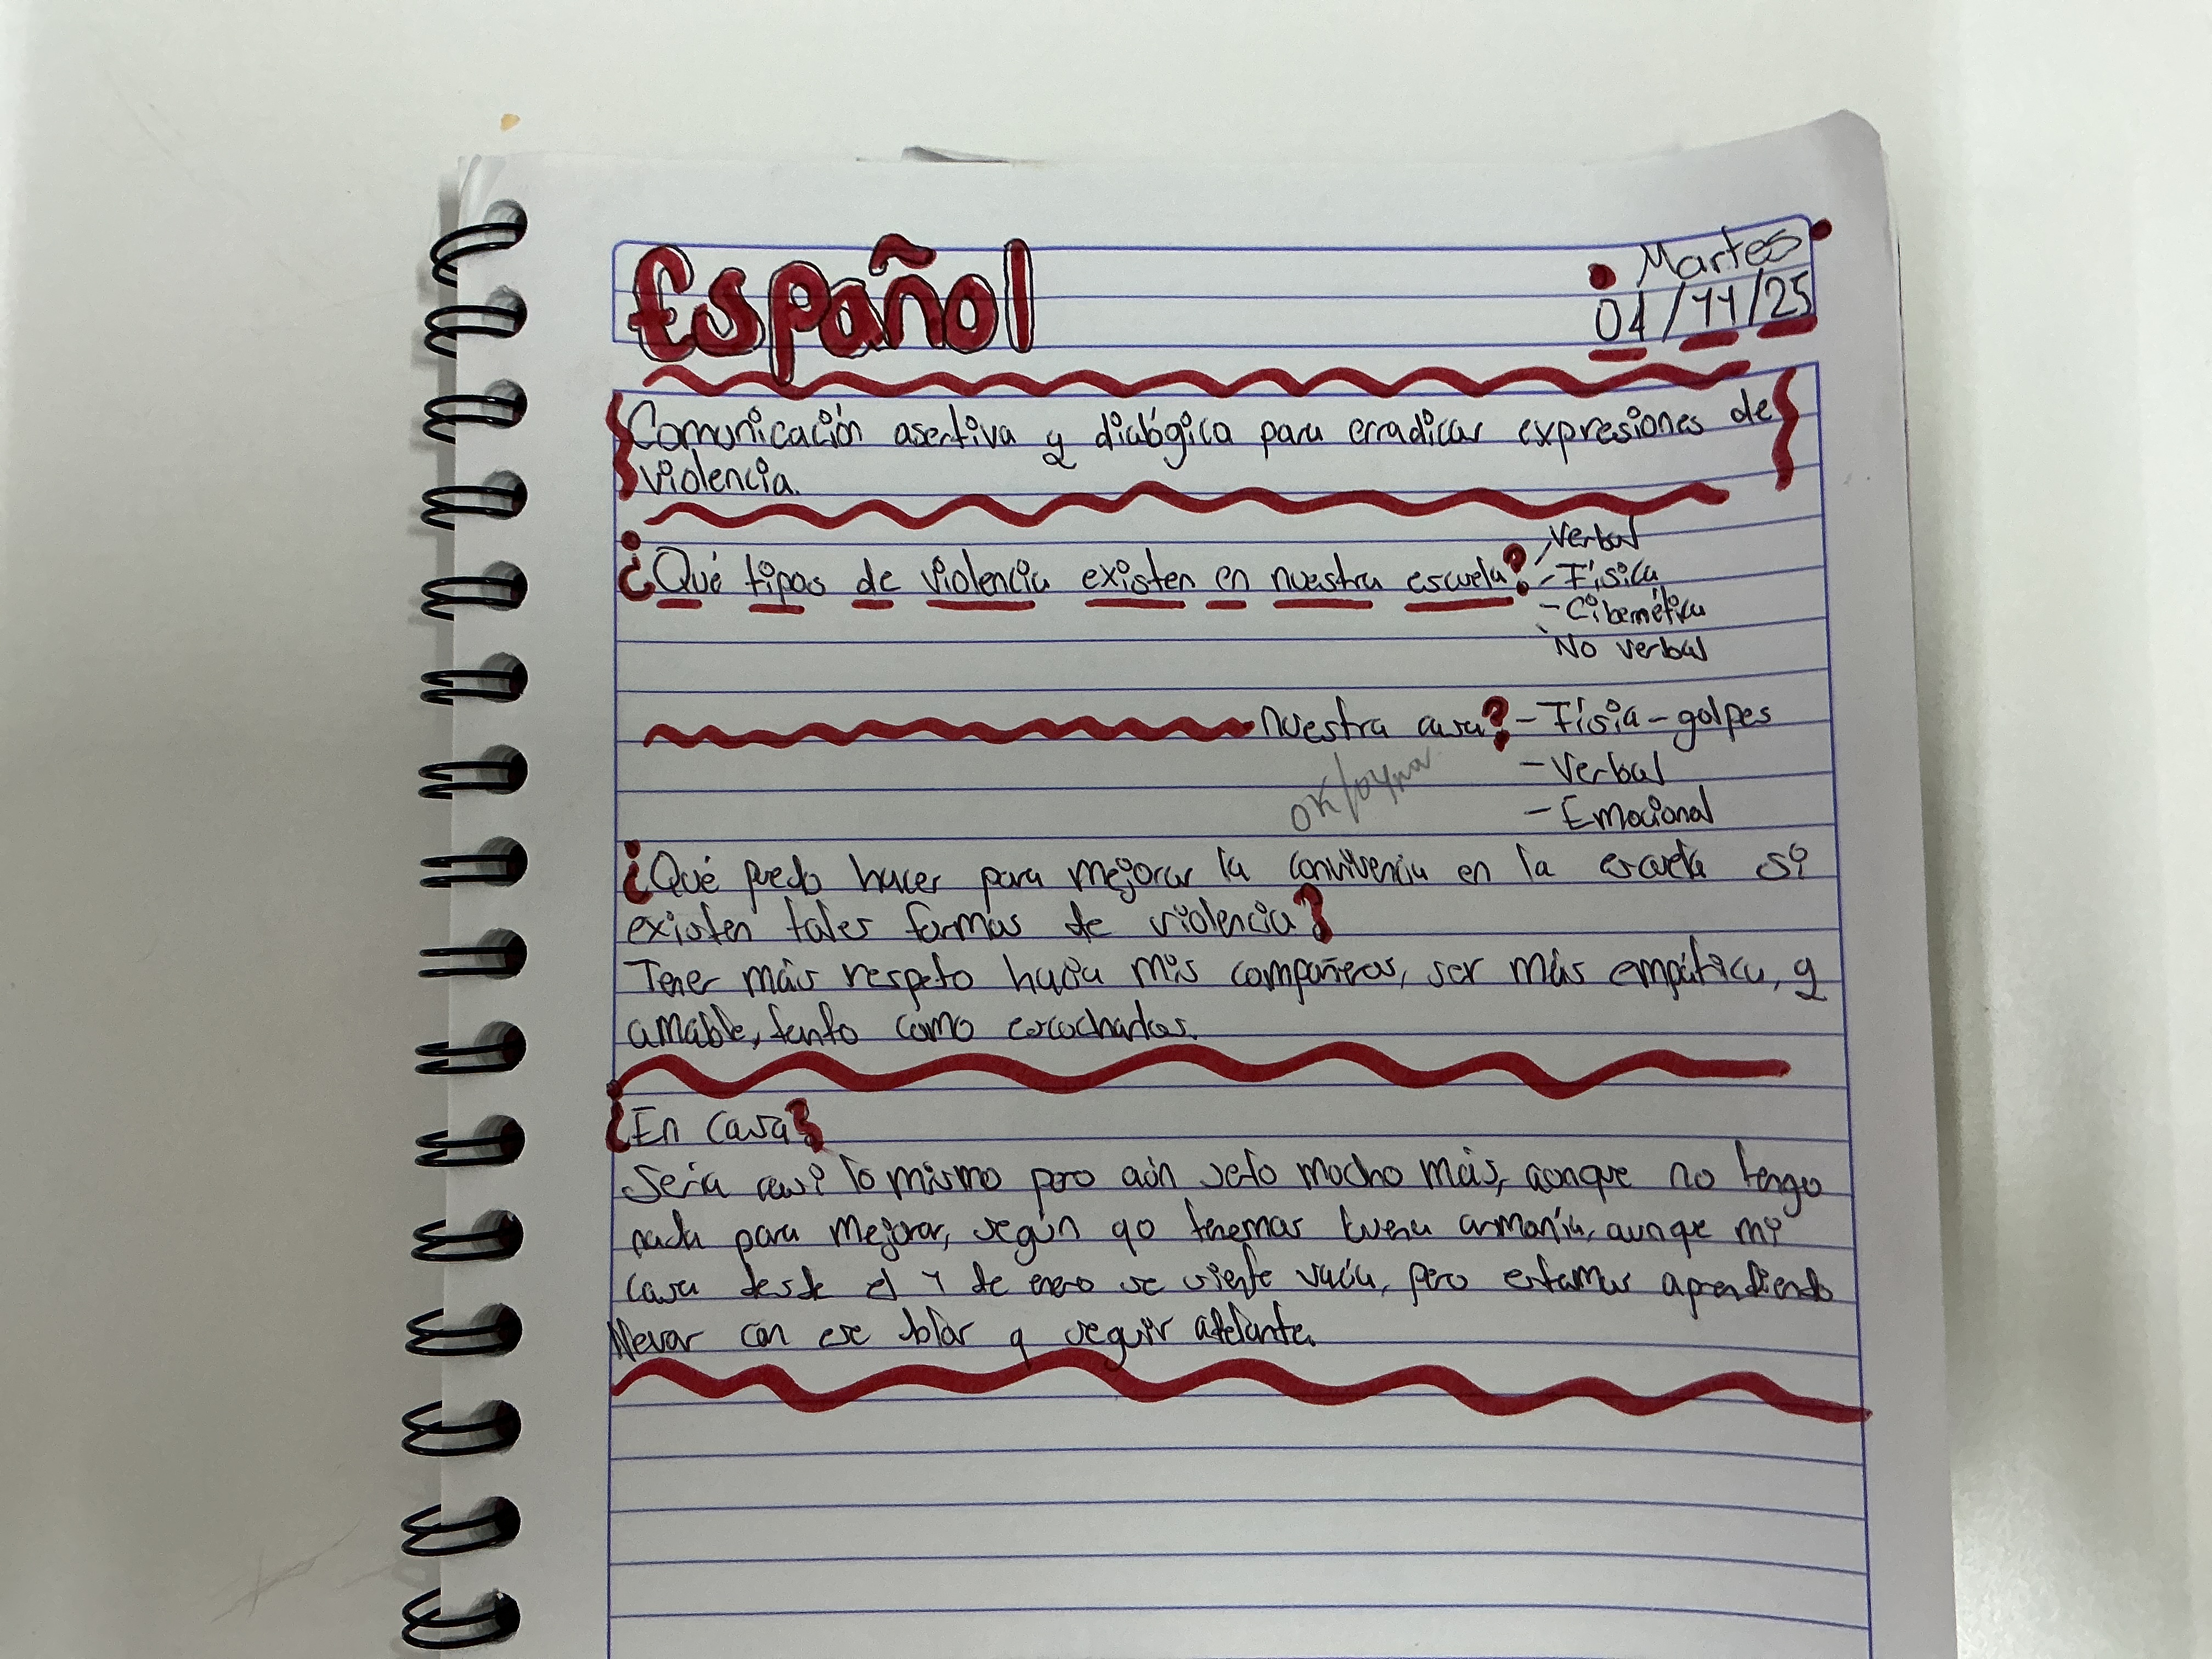 Español
Martes
04/11/25
Comunicación asertiva y dialógica para erradicar expresiones de
violencia.
¿Qué tipos de violencia existen en nuestra escuela? - Verbal
- Física
- Cibernética
- No verbal
nuestra casa? - Físia - golpes
- Verbal
- Emocional
¿Qué puedo hacer para mejorar la convivencia en la escuela si
existen tales formas de violencia?
Tener más respeto hacia mis compañeros, ser más empática, y
amable, tanto como escucharlos.
¿En casa?
Sería casi lo mismo pero aún mucho más, aunque no tengo
nada para mejorar, según yo tenemos buena armonía, aunque mi
casa desde el de enero se siente vacía, pero estamos aprendiendo
llevar con ese dolor y seguir adelante.